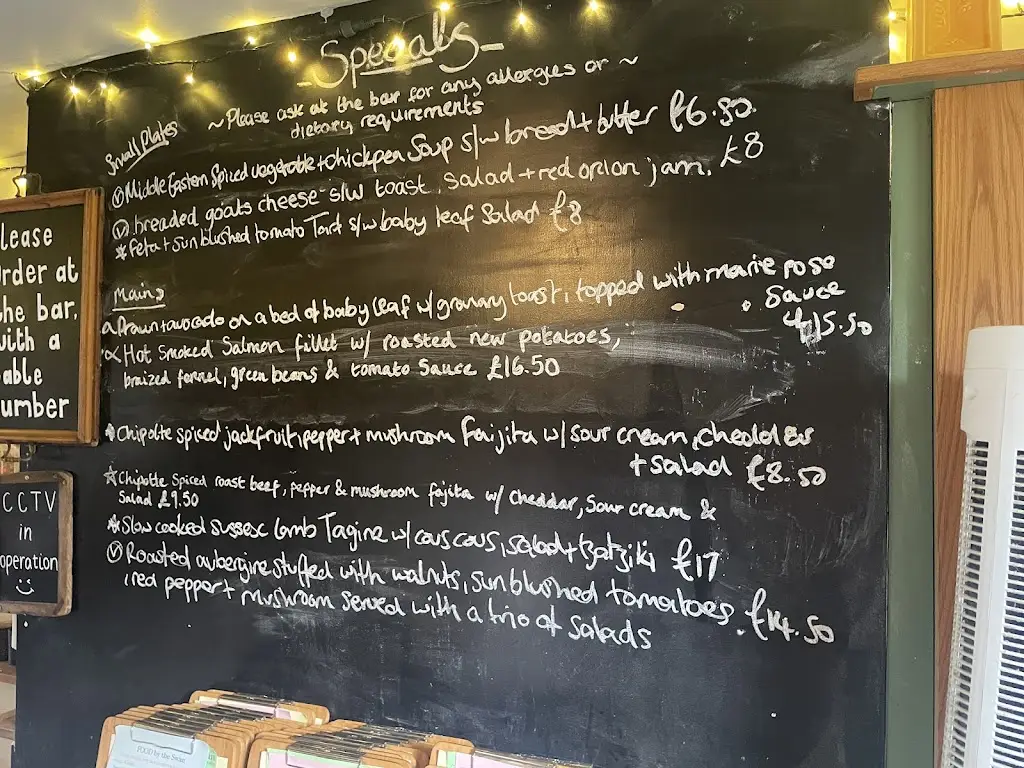 Specials
~Please ask at the bar for any allergies or ~
dietary requirements
Small Plates
Ⓥ Middle Eastern Spiced vegetable + chickpea Soup s/w bread + butter £6.50.
Ⓥ breaded goats cheese s/w toast, salad + red onion jam. £8
* Feta + sunblushed tomato Tart s/w baby leaf Salad £8
Mains
Prawn + avocado on a bed of baby leaf w/ granary toast, topped with marie rose
Sauce
15.50
Hot Smoked Salmon fillet w/ roasted new potatoes,
braized fennel, green beans & tomato Sauce £16.50
Chipolte spiced jackfruit, pepper + mushroom Faijita w/ sour cream, cheddar
+ salad £8.50
☆ Chipotle Spiced roast beef, pepper & mushroom fajita w/ cheddar, sour cream &
Salad £9.50
* Slow cooked Sussex lamb Tagine w/ cous cous, salad + tzatziki £17
Ⓥ Roasted aubergine stuffed with walnuts, sunblushed tomatoes £14.50
, red pepper + mushroom served with a trio of salads
lease
rder at
he bar,
with a
able
umber
CCTV
in
operation
FOOD by the Swan